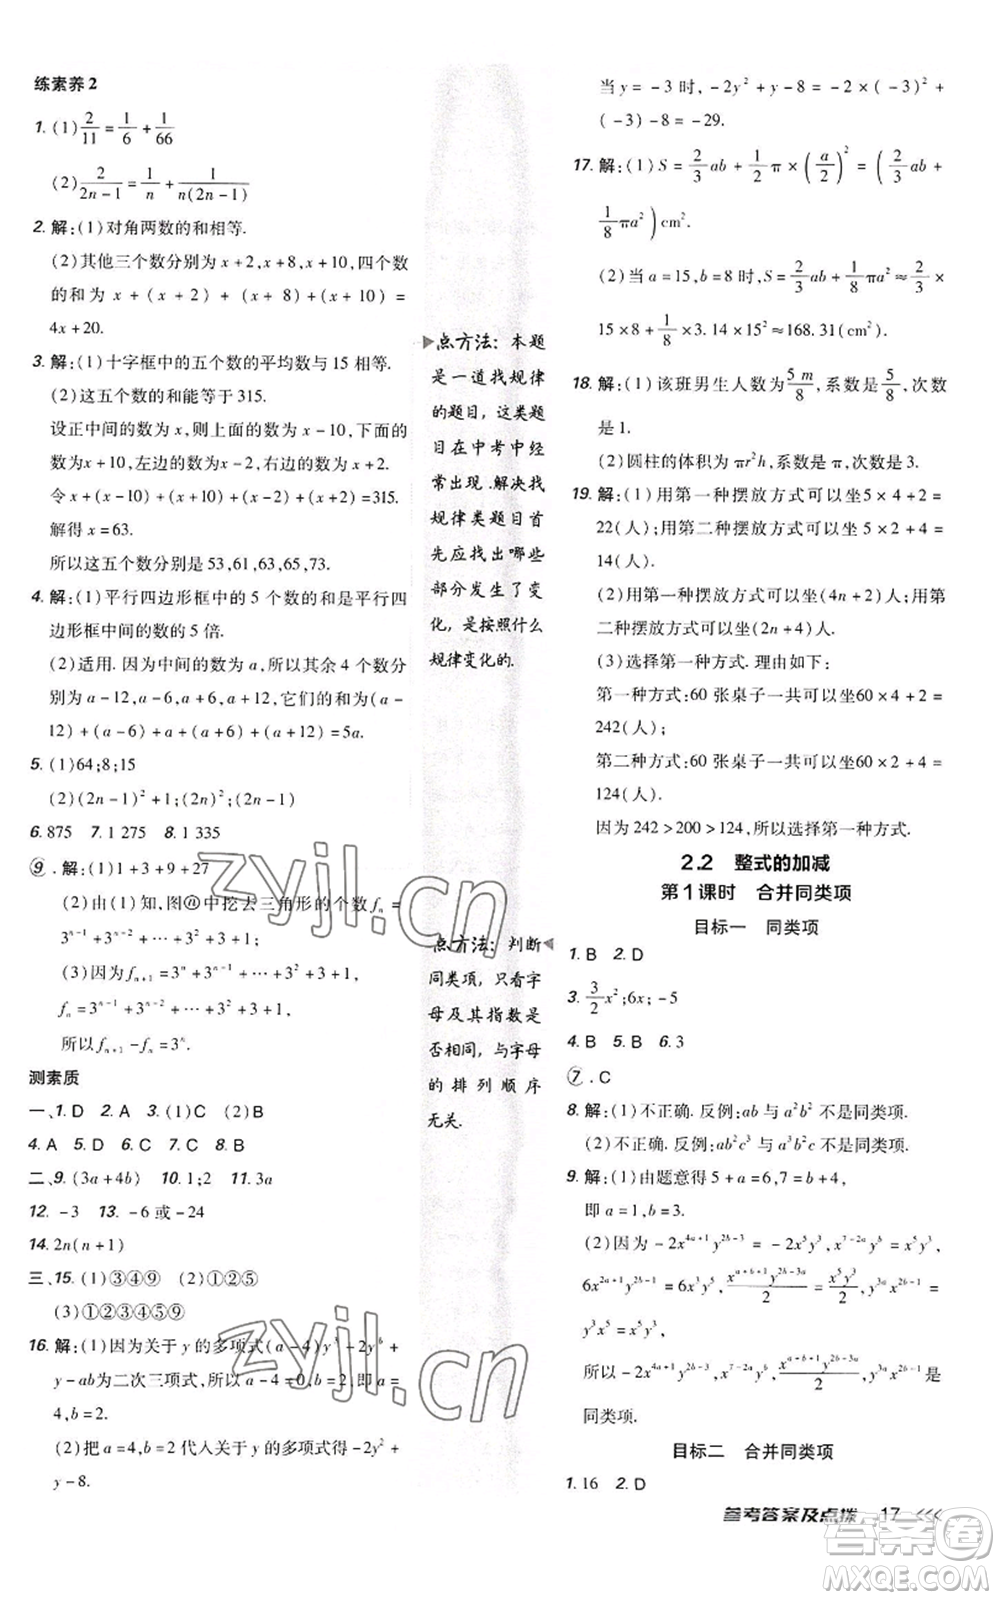 练素养2
1. (1) 2/11 = 1/6 + 1/66
(2) 2/(2n-1) = 1/n + 1/(n(2n-1))
2. 解:(1)对角两数的和相等.
(2)其他三个数分别为 x+2,x+8,x+10,四个数
的和为 x+(x+2)+(x+8)+(x+10)=
4x+20.
3. 解:(1)十字框中的五个数的平均数与15相等.
(2)这五个数的和能等于315.
设正中间的数为 x,则上面的数为 x-10,下面的
数为 x+10,左边的数为 x-2,右边的数为 x+2.
令 x+(x-10)+(x+10)+(x-2)+(x+2)=315.
解得 x=63.
所以这五个数分别是53,61,63,65,73.
4. 解:(1)平行四边形框中的5个数的和是平行四
边形框中间的数的5倍.
(2)适用. 因为中间的数为 a,所以其余4个数分
别为 a-12,a-6,a+6,a+12,它们的和为(a-
12)+(a-6)+a+(a+6)+(a+12)=5a.
5. (1)64;8;15
(2)(2n-1)²+1;(2n)²;(2n)²+1
6. 875 7. 1 275 8. 1 335
⑨. 解:(1)1+3+9+27
(2)由(1)可知,图ⓝ中挖去三角形的个数 fₙ=
3ⁿ⁻¹+3ⁿ⁻²+…+3+1.
(3)因为 fₙ₊₁=3ⁿ+3ⁿ⁻¹+…+3+1,
fₙ=3ⁿ⁻¹+3ⁿ⁻²+…+3+1,
所以 fₙ₊₁-fₙ=3ⁿ.
测素质
一、1. D 2. A 3. (1)C (2)B
4. A 5. D 6. D 7. C 8. B
二、9. (3a+4b) 10. 1;2 11. 3a
12. -3 13. -6或-24
14. 2n(n+1)
三、15. (1)①③④⑨ (2)①②⑤
(3)①②③④⑤⑨
16. 解:(1)因为关于 y 的多项式(a-4)y³-2yᵇ+
y-ab为二次三项式,所以 a-4=0,b=2,即 a=
4,b=2.
(2)把 a=4,b=2代入关于 y 的多项式得-2y²+
y-8.
点方法:本题
是一道找规律
的题目,这类题
目在中考中经
常出现.解决找
规律类题目首
先应找出哪些
部分发生了变
化,是按照什么
规律变化的.
点方法:判断
同类项,只看字
母及其指数是
否相同,与字母
的排列顺序
无关.
当 y=-3时,-2y²+y-8=-2×(-3)²+
(-3)-8=-29.
17. 解:(1)S=2/3 ab+1/2 π×(a/2)²=(2/3 ab+
1/8 πa²)cm².
(2)当 a=15,b=8时,S=2/3 ab+1/8 πa²≈2/3×
15×8+1/8×3.14×15²≈168.31(cm²).
18. 解:(1)该班男生人数为 5/8 m,系数是 5/8,次数
是1.
(2)圆柱的体积为 πr²h,系数是 π,次数是3.
19. 解:(1)用第一种摆放方式可以坐5×4+2=
22(人);用第二种摆放方式可以坐5×2+4=
14(人).
(2)用第一种摆放方式可以坐(4n+2)人;用第
二种摆放方式可以坐(2n+4)人.
(3)选择第一种方式. 理由如下:
第一种方式:60张桌子一共可以坐60×4+2=
242(人);
第二种方式:60张桌子一共可以坐60×2+4=
124(人).
因为242>200>124,所以选择第一种方式.
2.2 整式的加减
第1课时 合并同类项
目标一 同类项
1. B 2. D
3. 3/2 x²;6x;-5
4. B 5. B 6. 3
⑦. C
8. 解:(1)不正确. 反例:ab与a²b²不是同类项.
(2)不正确. 反例:ab²c³与a³b²c不是同类项.
9. 解:(1)由题意得5+a=6,7=b+4,
即 a=1,b=3.
(2)因为 -2x⁴ᵃ⁺¹y²ᵇ⁻³=-2x⁵y³,x⁷⁻²ᵃyᵇ=x⁵y³,
6x²ᵃ⁺¹y²ᵇ⁻¹=6x³y⁵,xᵃ⁺ᵇ⁺¹y²ᵇ⁻³ᵃ/2=x⁵y³/2,yᵇx²ᵇ⁻¹=
y³x⁵,
所以 -2x⁴ᵃ⁺¹y²ᵇ⁻³,x⁷⁻²ᵃyᵇ,xᵃ⁺ᵇ⁺¹y²ᵇ⁻³ᵃ/2,yᵇx²ᵇ⁻¹是
同类项.
目标二 合并同类项
1. 16 2. D
参考答案及点拨 17
zyjl.cn
zyjl.cn
答案圈
MXQE.COM